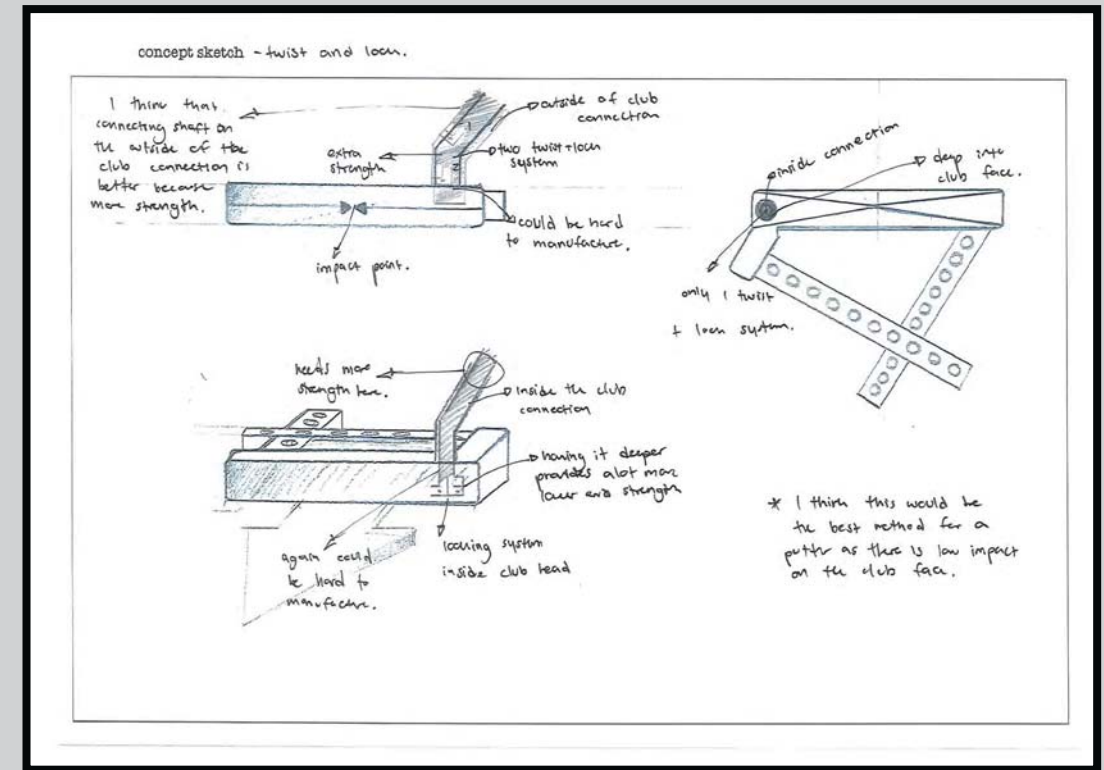 concept sketch - twist and lock.
I think that
connecting shaft on
the outside of the
club connection is
better because
more strength.
extra
strength
outside of club
connection
two twist + lock
system
1
2
could be hard
to manufacture.
impact point.
inside connection
deep into
club face.
only 1 twist
+ lock system.
needs more
strength here.
inside the club
connection
having it deeper
provides alot more
lower end strength
again could
be hard to
manufacture.
locking system
inside club head
* I think this would be
the best method for a
putter as there is low impact
on the club face.